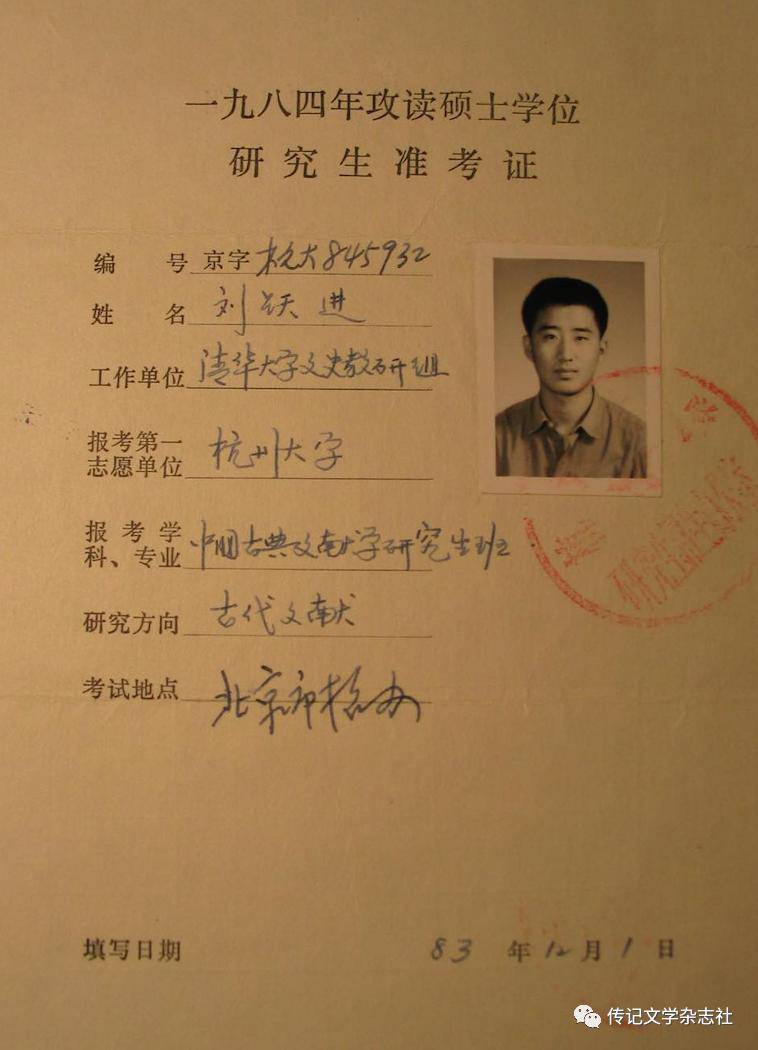 一九八四年攻读硕士学位
研究生准考证
编号 京字 杭大845932
姓名 刘跃进
工作单位 清华大学文史教研组
报考第一
志愿单位 杭州大学
报考学
科、专业 中国古典文献学研究生班
研究方向 古代文献
考试地点 北京市招办
填写日期 83年12月1日
传记文学杂志社